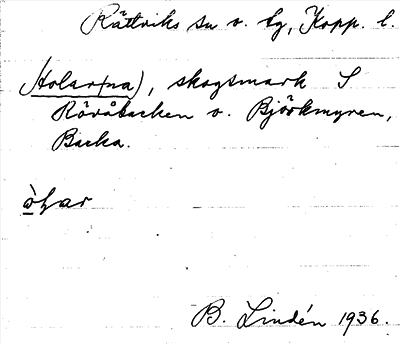 Rättviks sn o. tg, Kopp. l.
Holar(na), skogsmark S
Rövåbacken o. Björkmyren,
Backa.
B. Lindén 1936.